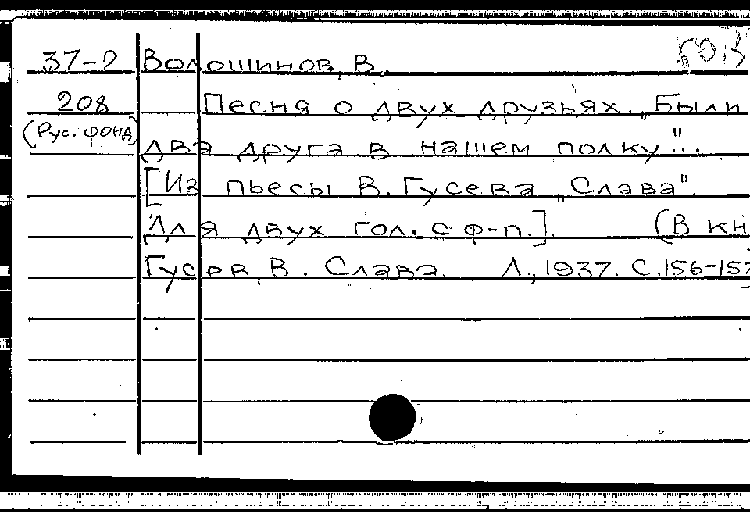 37-2 Волошинов, В.
208 Песня о двух друзьях. „Были
(Рус. фонд) два друга в нашем полку"...
[Из пьесы В. Гусева „Слава".
Для двух гол. с ф-п.]. (В кн
Гусев, В. Слава. Л., 1937. С. 156-157